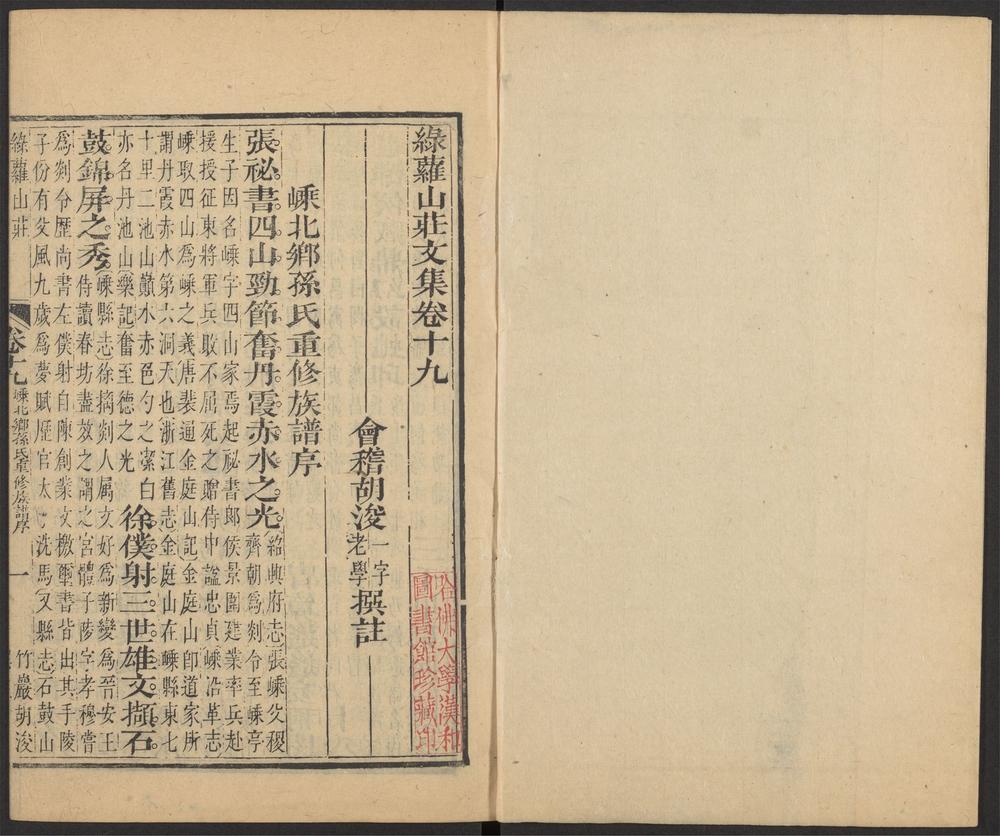 綠蘿山莊文集卷十九
哈佛大學漢和
圖書館珍藏印
會稽胡浚一字老學撰註
嵊北鄉孫氏重修族譜序
張祕書四山勁節奮丹霞赤水之光紹興府志張嵊父稷齊朝爲剡令至嵊亭
生子因名嵊字四山家焉起祕書郎侯景圍建業率兵赴
援授征東將軍兵敗不屈死之贈侍中諡忠貞嵊沿革志
嵊取四山爲嵊之義唐裴通金庭山記金庭山卽道家所
謂丹霞赤水第六洞天也浙江舊志金庭山在嵊縣東七
十里二池山巔水赤色勺之潔白
亦名丹池山藥記奮至德之光
徐僕射三世雄文擷石
鼓錦屏之秀嵊縣志徐摛剡人属文好爲新變爲晉安王
侍讀春坊盡效之謂之宮體子陵字孝穆嘗
爲剡令歷尚書左僕射自陳創業文檄璽書皆出其手陵
子份有父風九歲爲夢賦歷官太子洗馬又縣志石鼓山
綠蘿山莊 卷十九 嵊北鄉孫氏重修族譜序 一 竹巖胡浚